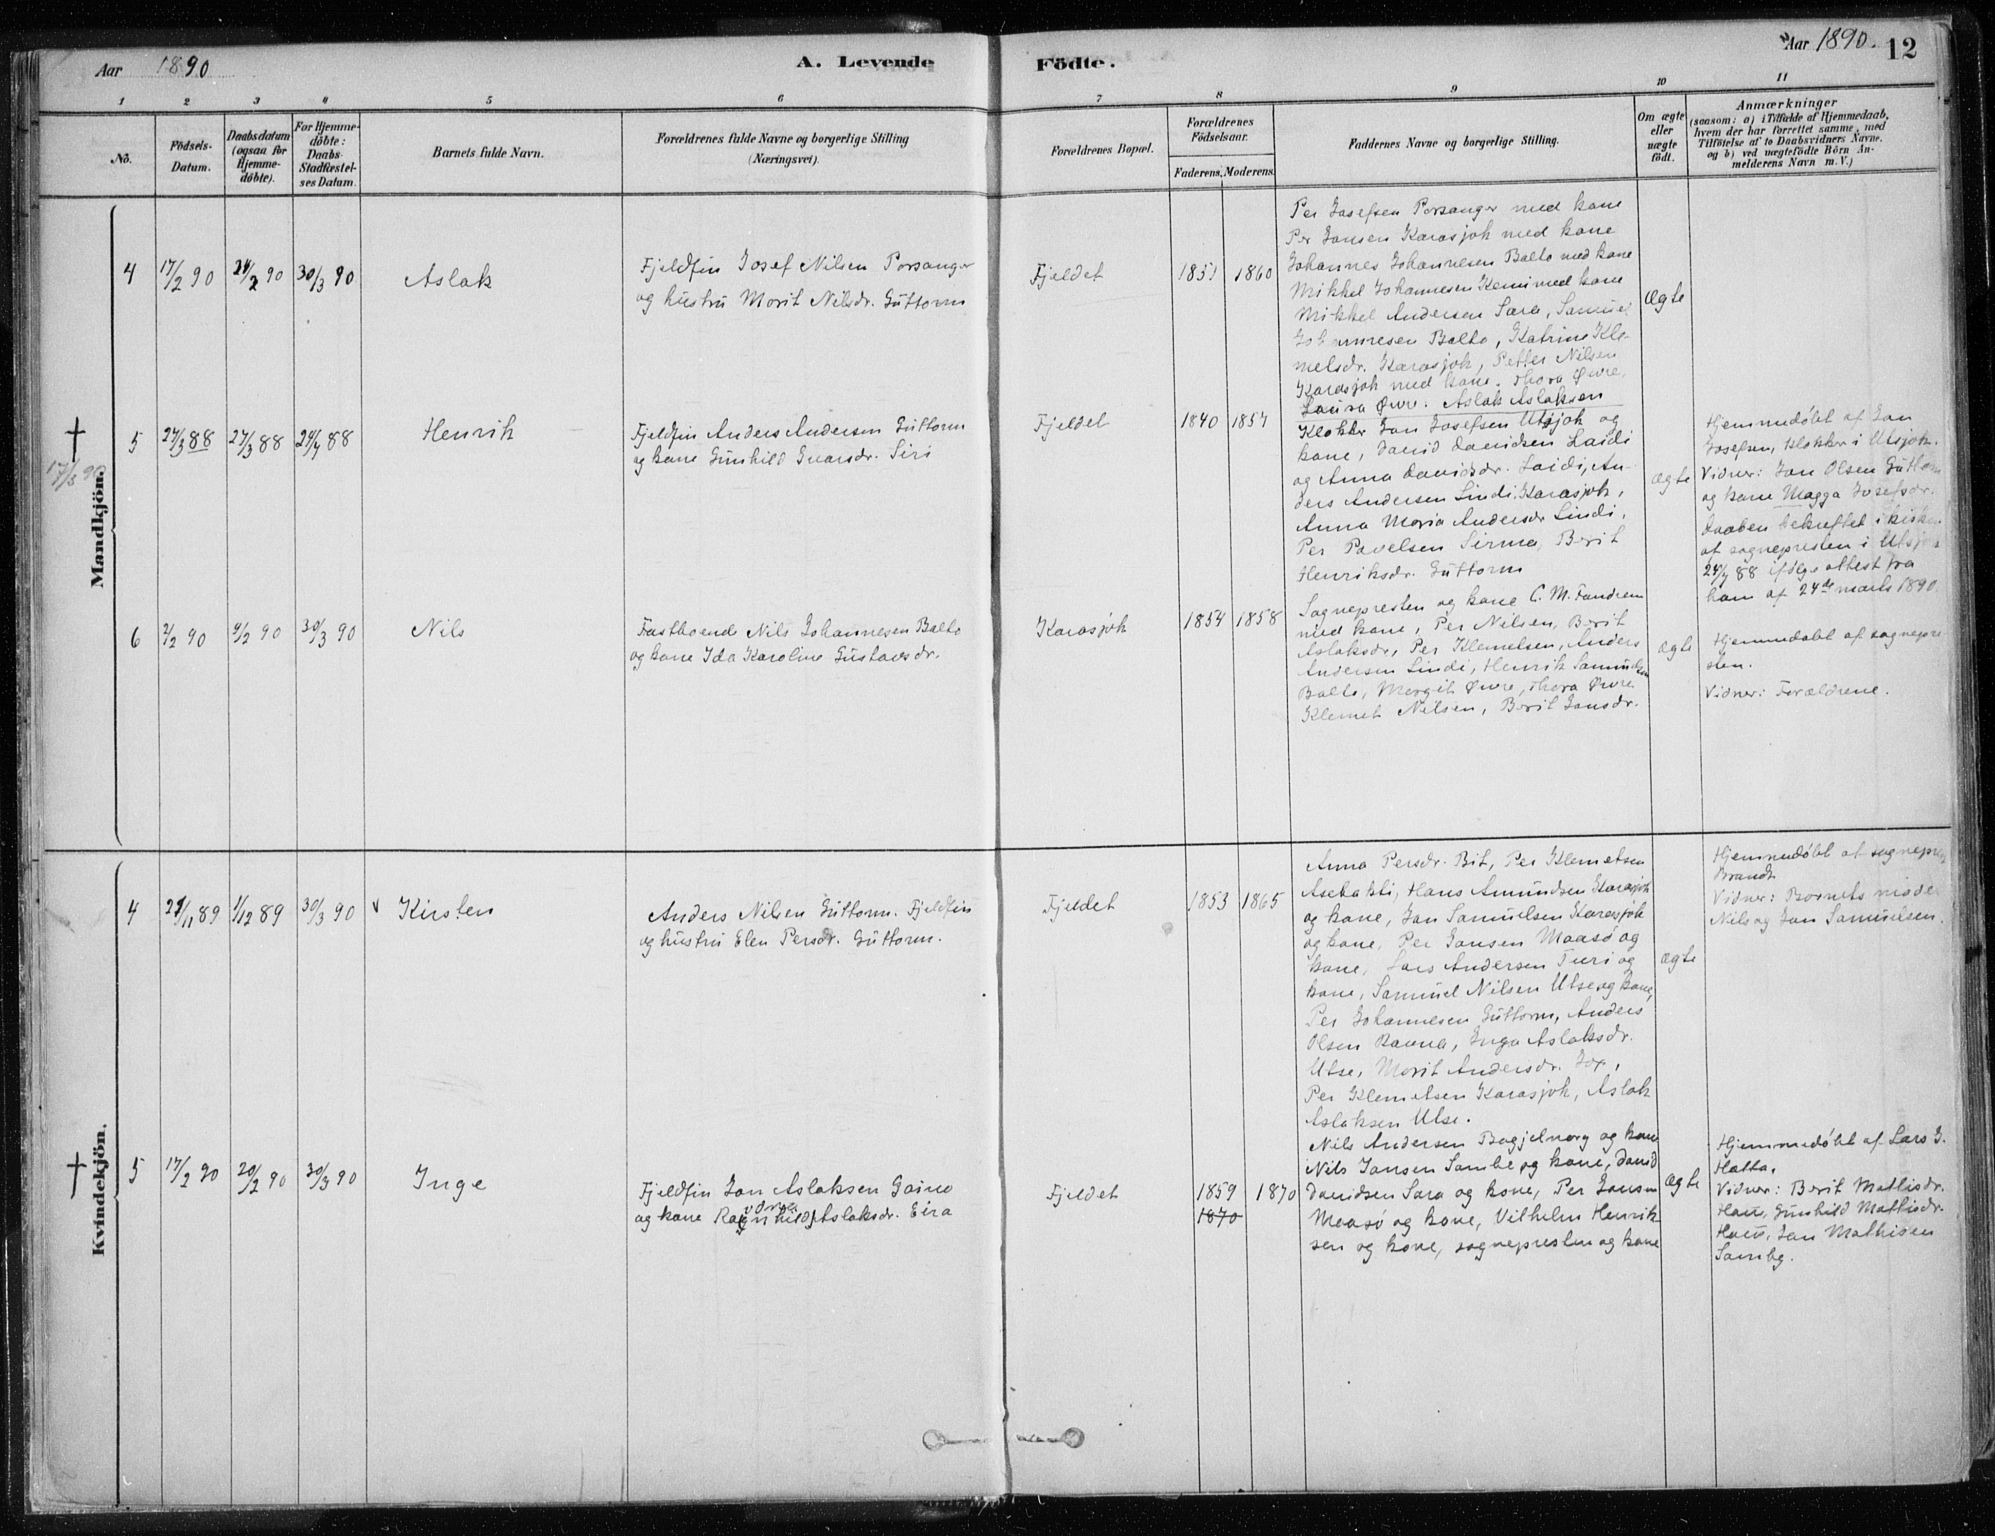 Aar 1890
A. Levende Födte.
Aar 1890. 12
1 2 3 4 5 6 7 8 9 10 11
No.
Födsels-Datum.
Daabsdatum (ogsaa for Hjemme-döbte).
For Hjemme-döbte: Daabs-Stadfæstel-ses Datum.
Barnets fulde Navn.
Forældrenes fulde Navne og borgerlige Stilling (Næringsvei).
Forældrenes Bopæl.
Forældrenes Födselsaar.
Faderens. Moderens.
Faddernes Navne og borgerlige Stilling.
Om ægte eller uægte födt.
Anmærkninger
(saasom: a) i Tilfælde af Hjemmedaab,
hvem der har forrettet samme, med
Tilföielse af to Daabsvidners Navne.
og b) ved uægtefödte Börn An-
melderens Navn m. V.)
Mandkjön.
4 17/2 90 24/2 90 30/3 90 Aslak
Fjeldfin Josef Nilsen Porsanger
og hustru Morit Nilsdr. Guttorm
Fjeldet 1851 1860
Per Josefsen Porsanger med kone
Per Jonsen Karasjok med kone
Johannes Johannesen Balto med kone
Mikkel Johannesen Kemi med kone
Mikkel Andersen Sara, Samuel
Johannesen Balto, Katrine Kle-
metsdr. Karasjok, Petter Nilsen
Karasjok med kone. Thora Øvre,
Laura Øvre. Aslak Aslaksen
Ægte
† 17/3 90
5 27/3 88 27/3 88 24/4 88 Henrik
Fjeldfin Anders Andersen Guttorm
og kone Gunhild Guarsdr. Siri
Fjeldet 1840 1854
Klokker Jan Josefsen Utsjok og
kone, David Davidsen Laidi
og Anna Davidsdr. Laidi, An-
ders Andersen Lindi Karasjok,
Anna Maria Andersdr Lindi,
Per Pavelsen Sirma, Berit
Henriksdr. Guttorm
Ægte
Hjemmedøbt af Jan
Josefsen, klokker i Utsjok.
Vidner: Jon Olsen Guttorm
og kone Magga Josefsdr.
Daaben bekreftet i kirken
af sognepresten i Utsjok
24/4 88 ifølge attest fra
ham af 24de marts 1890.
6 2/2 90 9/2 90 30/3 90 Nils
Fastboende Nils Johannesen Balto
og kone Ida Karoline Gustavsdr.
Karasjok 1854 1858
Sognepresten og kone C. M. Fandrem
med kone, Per Nilsen, Berit
Aslaksdr, Per Klemetsen, Anders
Andersen Lindi, Henrik Samuelsen
Balto, Margit Øvre, Thora Øvre
Klemet Nilsen, Berit Jonsdr.
Ægte
Hjemmedøbt af sognepre-
sten.
Vidner: Forældrene.
Kvindekjön.
4 27/11 89 1/12 89 30/3 90 Kirsten
Anders Nilsen Guttorm. Fjeldfin
og hustru Elen Persdr. Guttorm.
Fjeldet 1853 1865
Anna Persdr. Bit, Per Klemetsen
Asebakti, Hans Amundsen Karasjok
og kone, Jan Samuelsen Karasjok
og kone, Per Jonsen Maasø og
kone, Lars Andersen Turi og
kone, Samuel Nilsen Utse og kone,
Per Johannesen Guttorm, Anders
Olsen Bauna, Inga Aslaksdr.
Utse, Morit Andersdr. Jox,
Per Klemetsen Karasjok, Aslak
Aslaksen Utse.
Ægte
Hjemmedøbt af sognepre
Brandt
Vidner: Barnets moder
Nils og Jon Samuelsen.
†
5 17/2 90 20/2 90 30/3 90 Inge
Fjeldfin Jon Aslaksen Gaino
og kone Ragnhild Aslaksdr. Eira
Fjeldet 1859 1870
1870
Nils Andersen Bagjelnarg og kone
Nils Jonsen Sombe og kone, David
Davidsen Sara og kone, Per Jonsen
Maasø og kone, Vilhelm Henrik
sen og kone, sognepresten og kone
Ægte
Hjemmedøbt af Lars J.
Hætta.
Vidner: Berit Mathisdr.
Gunhild Mathisdr.
Jon Mathisen
Somby.